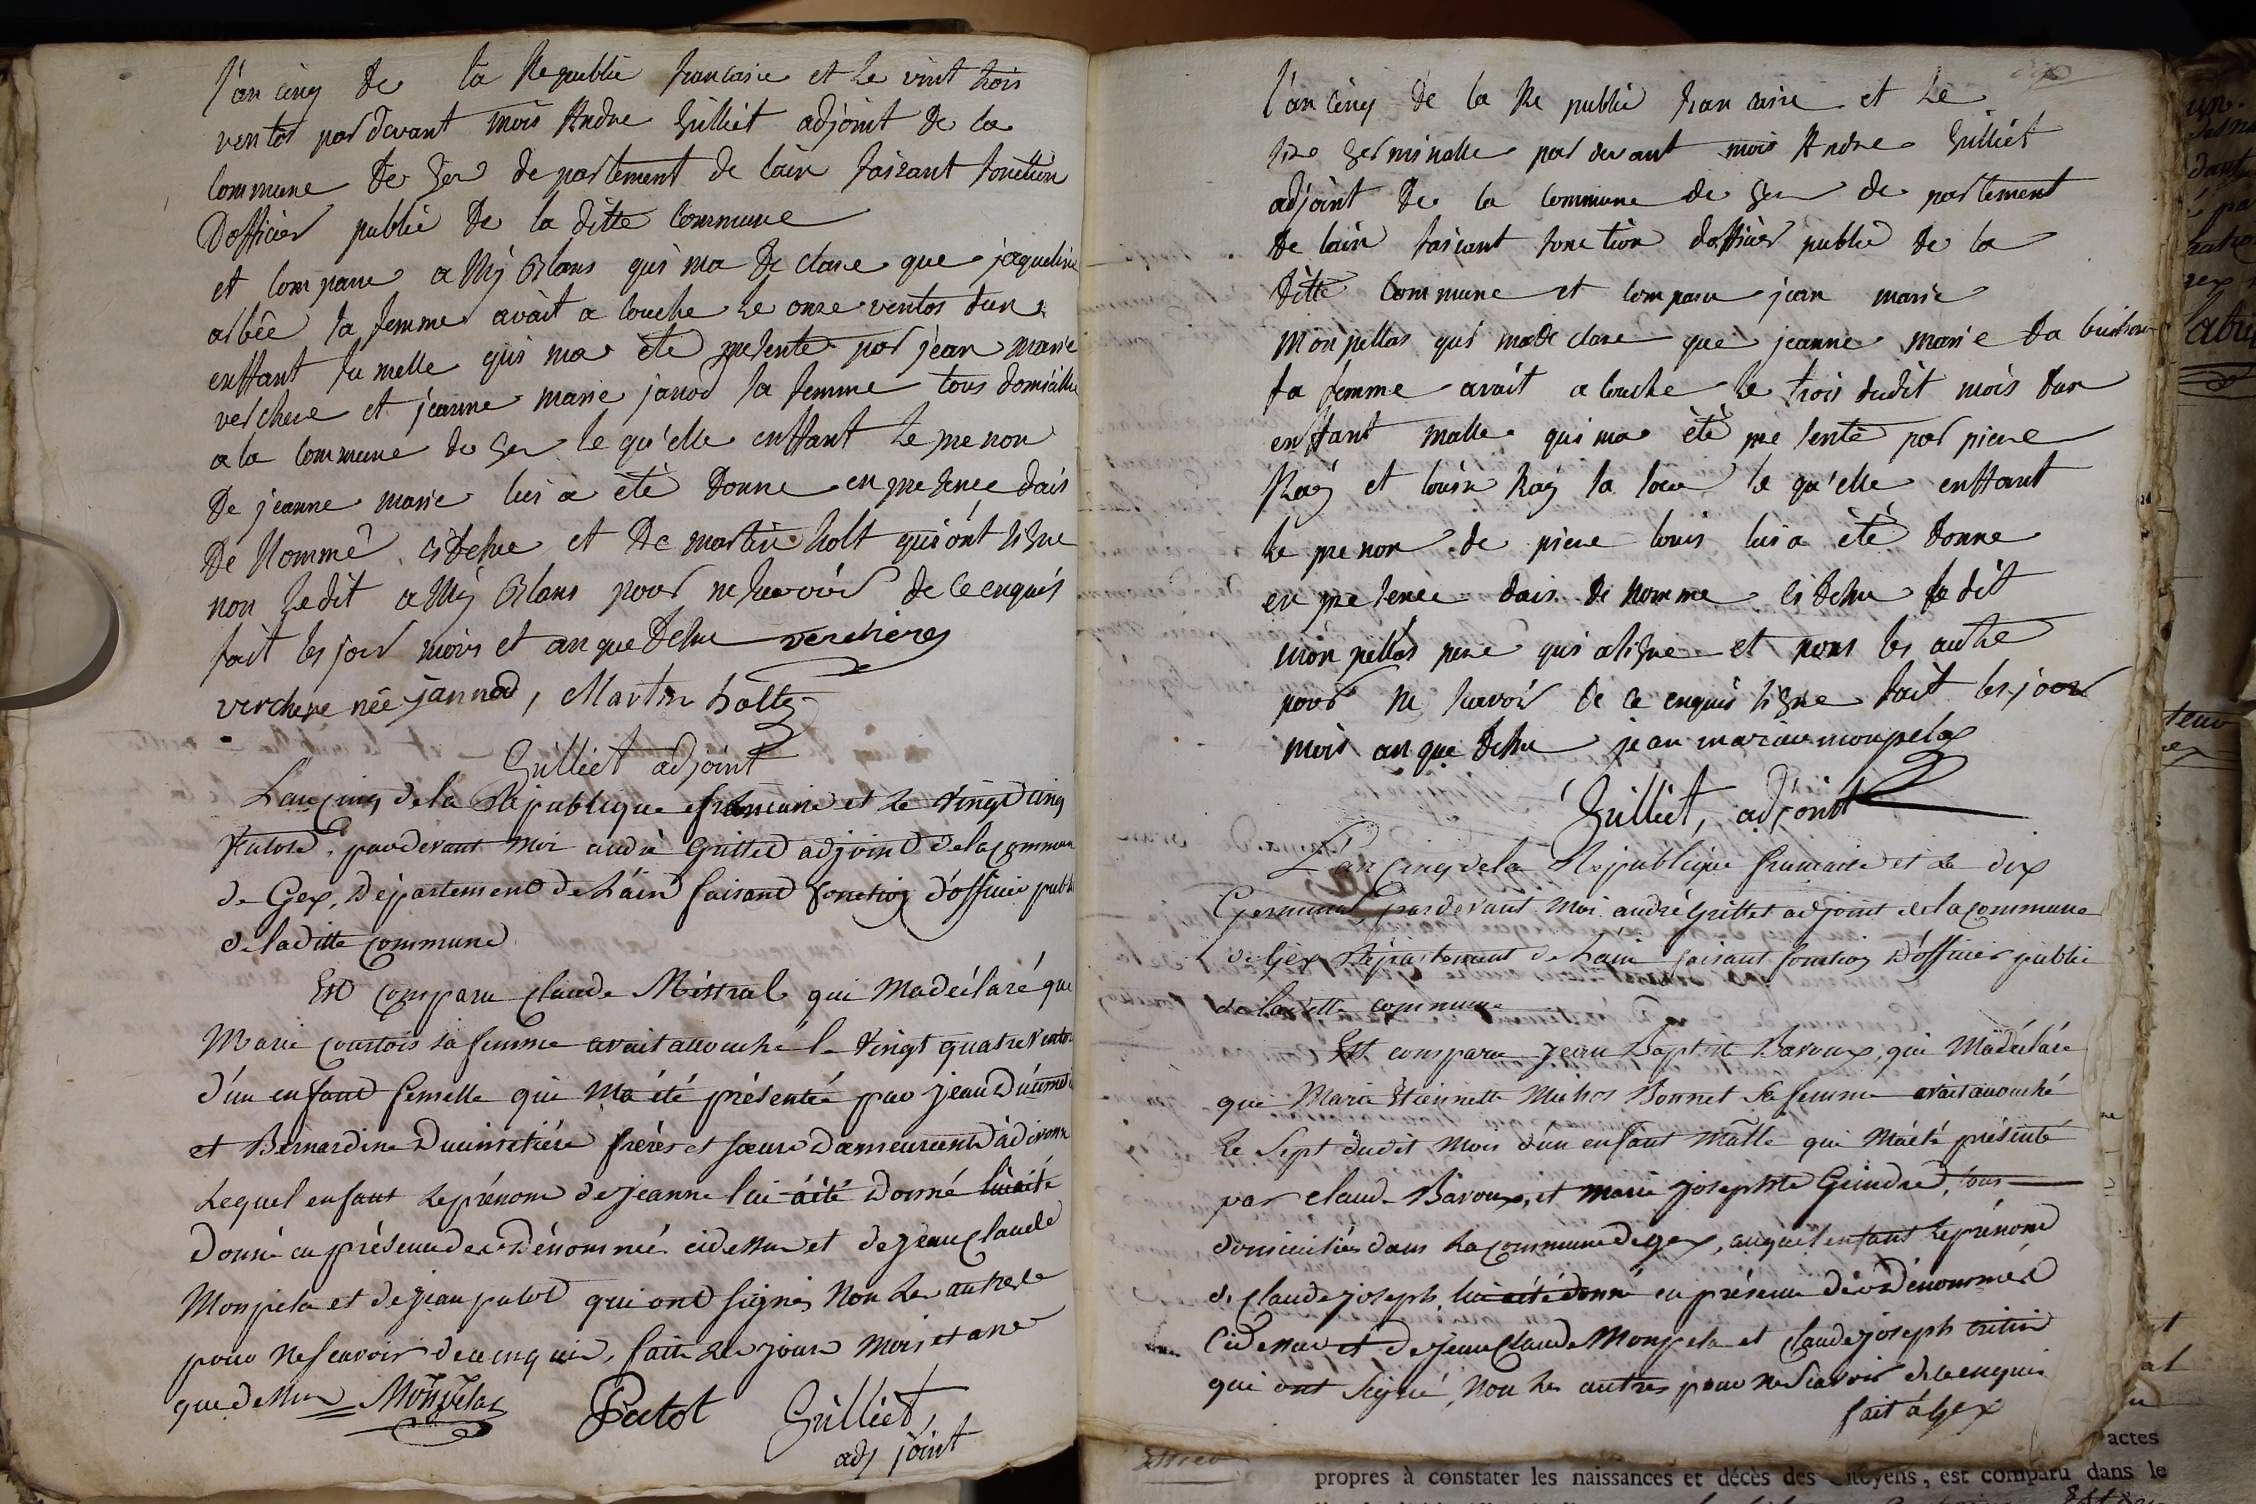 l'an cinq de la Republic francaise et le vint trois
ventos par devant mois Andre Gilliet adjoint de la
commune de Gex departement de lain faisant fonction
Dofficier public de la ditte commune
et compare a Mij Blans qui ma de clare que jaqueline
arbêe sa femme avait a couche le onze ventos dun
enffant fu melle qui ma été presente par jean marie
verchere et jeanne marie janod sa femme tous domicillie
a la commune de Gex le qu'elle enffant le prenon
De jeanne marie lui a été donne en presence dais
De Nommê ci desu et de martin holt qui ont signe
non ledit a Mij Blans pour ne savoir de ce enquis
fait les jour mois et an que desu vercheres
verchere née jannod, Martin holtz
Gilliet adjoint
L'an cinq de la République francaise et le vingt cinq
Vantose, pardevant moi andré Grillet adjoint de la commune
de Gex, Département de l'ain faisant fonction d'officier public
de la ditte commune
Est comparu claude Mistral qui Ma déclaré que
Marie courtois sa femme avait accouché le vingt quatre ventose
d'un enfant femelle qui Ma été présentée par jean Ducimetie
et Bernardine Ducimetiére frères et sœure demeurant à divonne
Lequel enfant le prénom de jeanne lui a été donné lui a été
donné en présence des dénommé cidessus et de jean claude
Monpela et de jean patot qui ont signés Non les autres
pour ne scavoir de ce enquis, fait les jour mois et an
que dessus Monpelas Patot Gilliet
adj joint
l'an cinq de la Re public francaise et le
six germinalle par devant mois Andre Gilliet
adjoint de la commune de Gex de partement
de lain faisant fonction dofficier public de la
ditte commune et comparu jean marie
Monpellas qui ma de clare que jeanne marie da buisson
sa femme avait a couche le trois dudit mois dun
enffant malle qui ma été pre senté par piere
Raÿ et louise Raÿ sa soeur le qu'elle enffant
le prenon de piere louis lui a été donne
en presence dais de nomme ci desu le dit
monpellas pere qui a signe et nons les autre
pour ne savoir de ce enquis signe fait les jour
mois an que desu jean marie monpelas
Gilliet, adjoint
L'an cinq de la République francaise et le dix
Germinal, pardevant Moi andré Grillet adjoint de la commune
de Gex Département de L'ain faisant fonction D'officier public
de la ditte commune
Est comparu jean Baptiste Baroux, qui Ma déclaré
que Marie Etiennette Michos Bonnet sa femme avait accouché
le sept dudit Mois d'un enfant Mâlle qui M'a été présenté
par claude Baroux, et marie josephte Geindre, tous
domiciliés dans la commune de gex, auquel enfant le prénom
de claude joseph lui a été donné en présence des dénommés
cidessus et de jean claude Monpela et claude joseph tritin
qui ont signé, Non les autres pour ne scavoir de ce enquis
fait à Gex
actes
propres à constater les naissances et décès des Citoyens, est comparu dans le